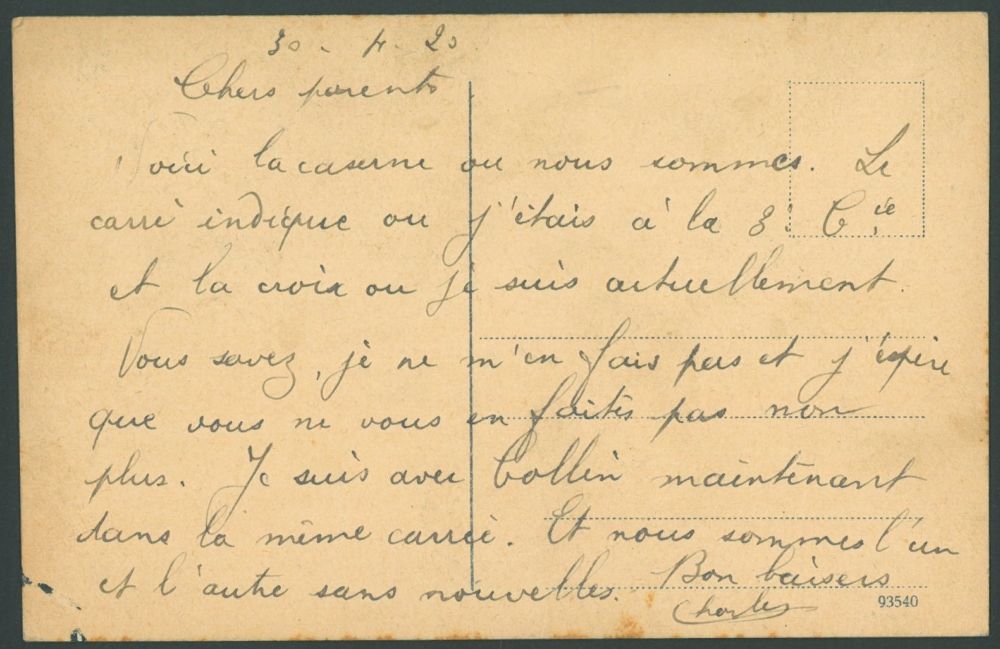 30 - 4 - 20
Chers parents
Voici la caserne ou nous sommes. Le
carré indique ou j'étais à la 3e Cie
et la croix ou je suis actuellement.
Vous savez, je ne m'en fais pas et j'éspère
que vous ne vous en faites pas non
plus. Je suis avec Collin maintenant
dans la même carrée. Et nous sommes l'un
et l'autre sans nouvelles. Bon baisers
Charles
93540